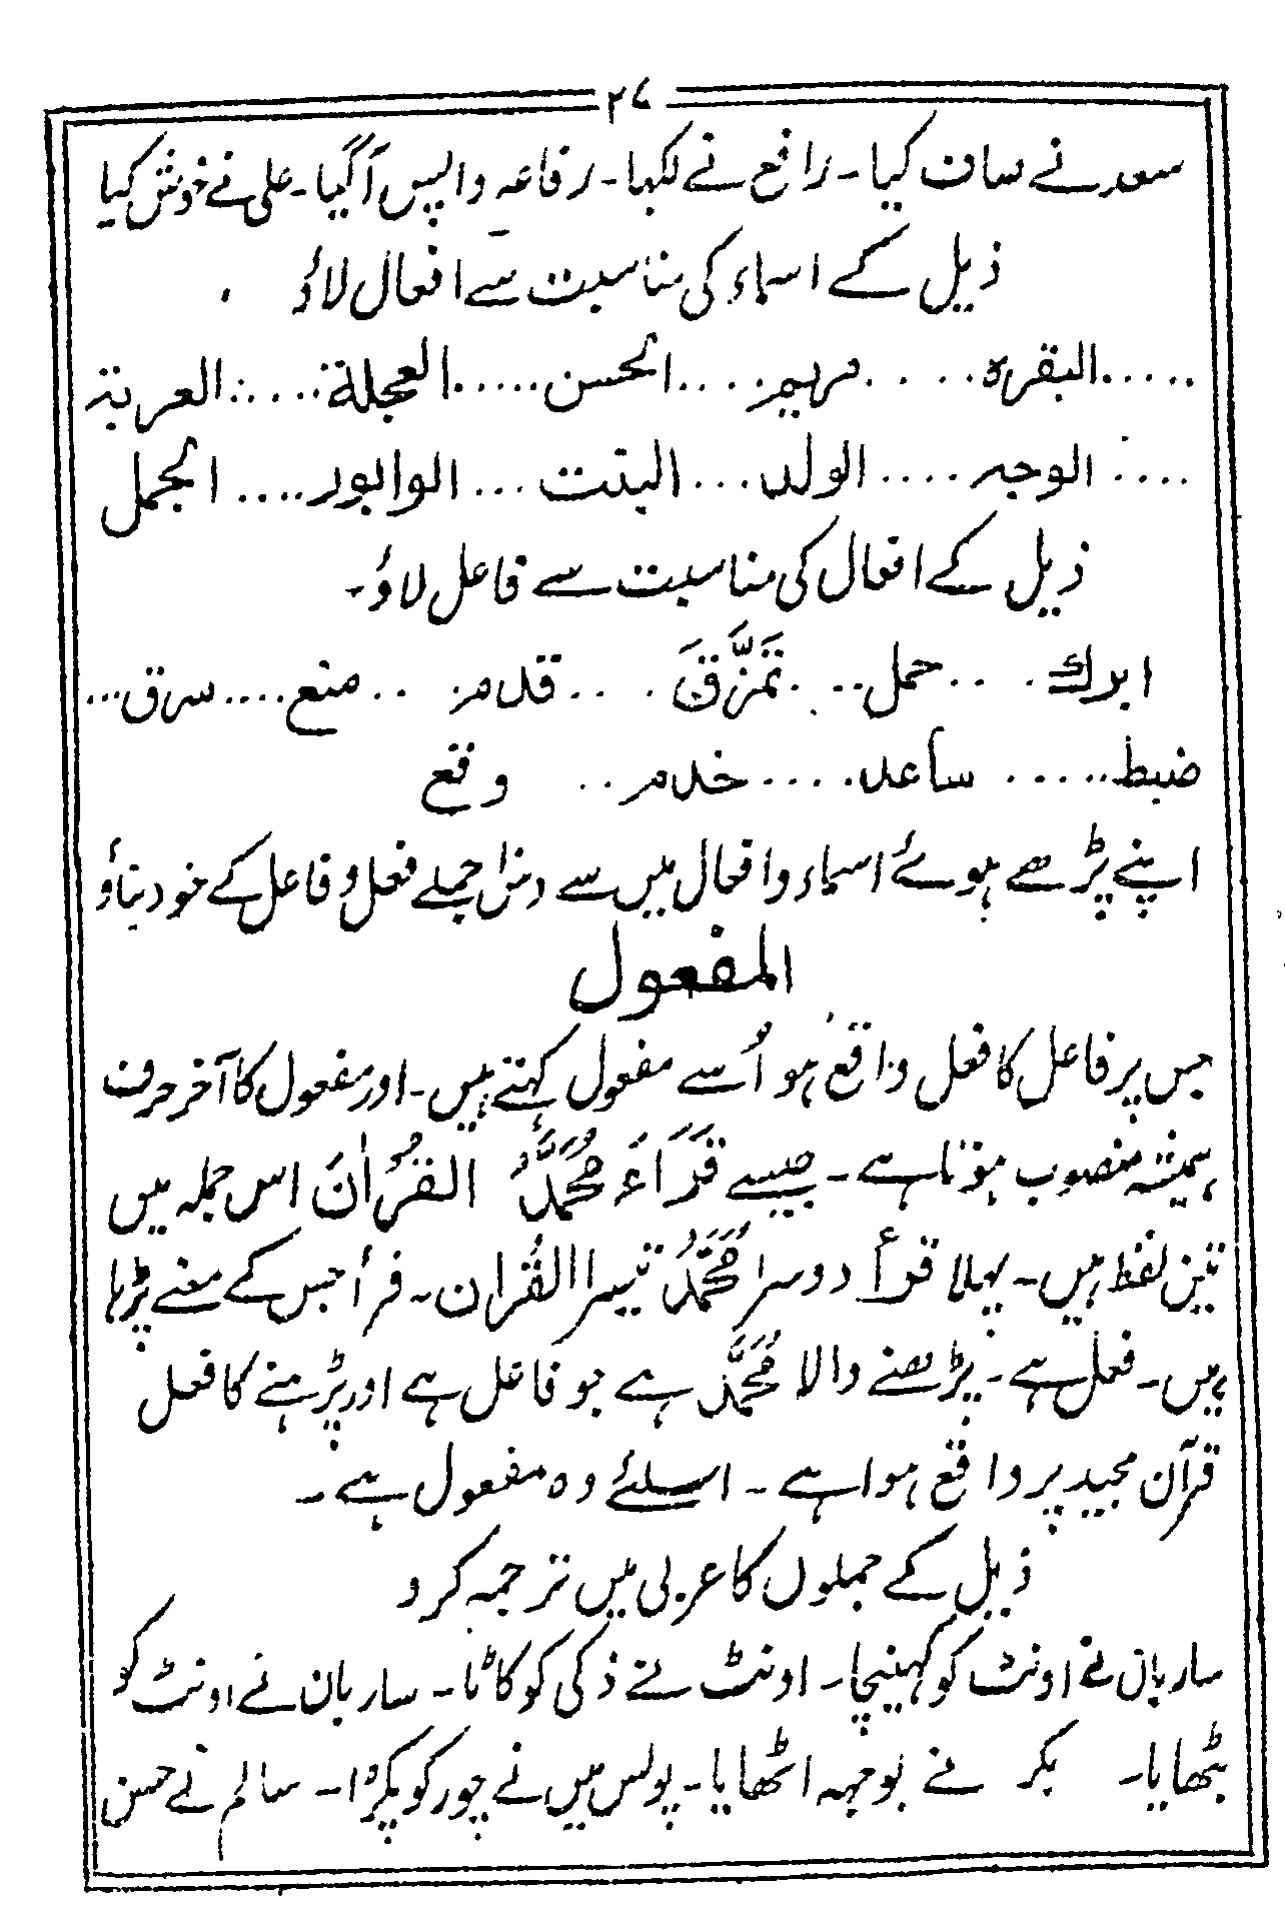 ۲۷
سعد نے صاف کیا۔ رافع نے لکھا۔ رفاعہ واپس آگیا۔ علی نے خوش کیا
ذیل کے اسماء کی مناسبت سے افعال لاؤ
.....البقرہ.....مریم....الحسن.....العجلة.....العربۃ
....الوجہ....الولد...البنت...الوابور....الجمل
ذیل کے افعال کی مناسبت سے فاعل لاؤ۔
ابرك....حمل...تَمَزَّقَ...قدم...منع....سرق...
ضبط.....ساعد....خدم..وقع
اپنے پڑھے ہوئے اسماء وافعال میں سے دس جملے فعل و فاعل کے خود بناؤ
المفعول
جس پر فاعل کا فعل واقع ہو اُسے مفعول کہتے ہیں۔ اور مفعول کا آخر حرف
ہمیشہ منصوب ہوتا ہے۔ جیسے قَرَاَءَ مُحَمَّدٌ القُرْاٰنَ اس جملہ میں
تین لفظ ہیں۔ پہلا قرأ دوسرا مُحَمَّدُ تیسرا القُران۔ قرأ جس کے معنے پڑہا
ہیں۔ فعل ہے۔ پڑھنے والا مُحَمَّد ہے جو فاعل ہے اور پڑہنے کا فعل
قرآن مجید پر واقع ہوا ہے۔ اسلئے وہ مفعول ہے۔
ذیل کے جملوں کا عربی میں ترجمہ کرو
ساربان نے اونٹ کو کہینچا۔ اونٹ نے ذکی کو کاٹا۔ ساربان نے اونٹ کو
بٹھایا۔ بکر نے بوجہہ اٹھایا۔ پولس مین نے چور کو پکڑا۔ سالم نے حسن